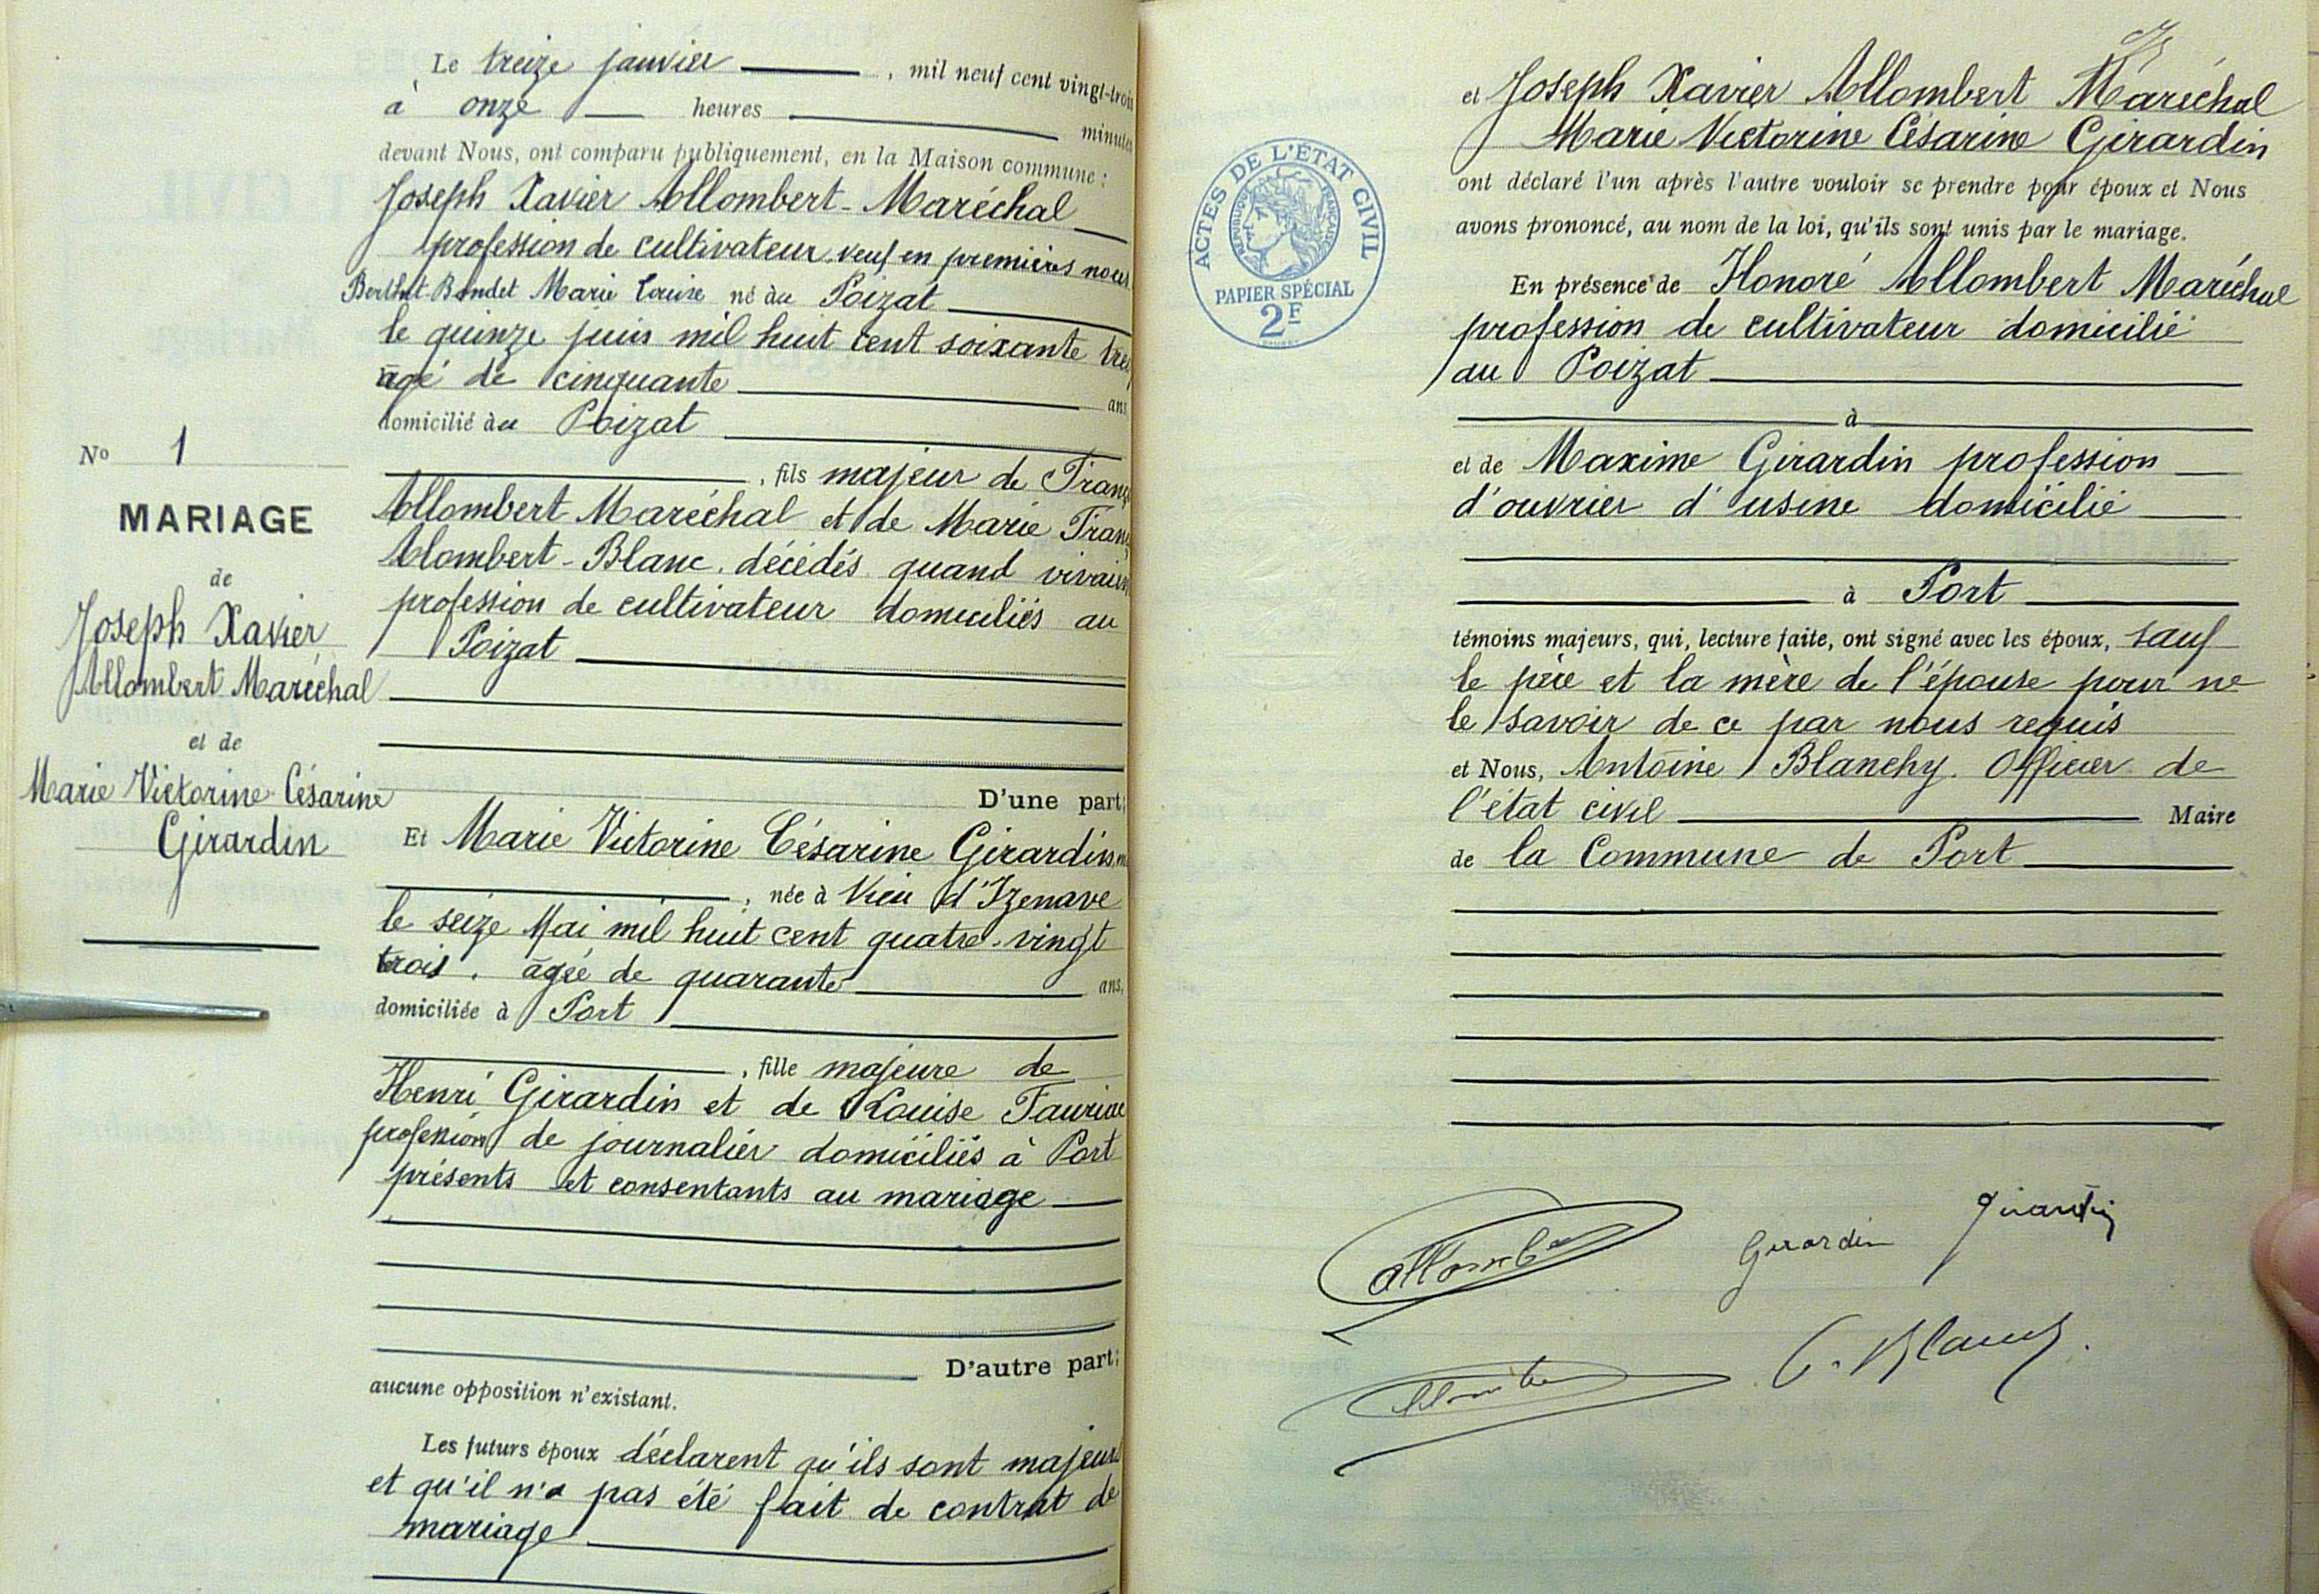 Le treize janvier , mil neuf cent vingt-trois
à onze heures minutes
devant Nous, ont comparu publiquement, en la Maison commune :
Joseph Xavier Allombert-Maréchal
profession de cultivateur veuf en premières noces
Berthet-Bondet Marie Louise né au Poizat
le quinze juin mil huit cent soixante trei
âgé de cinquante ans,
domicilié au Poizat
, fils majeur de Franç
Allombert Maréchal et de Marie Franç
Alombert-Blanc. décédés quand vivaien
profession de cultivateur domiciliés au
Poizat
D'une part;
Et Marie Victorine Césarine Girardin,
, née à Vieu d'Izenave
le seize Mai mil huit cent quatre-vingt
trois. âgée de quarante ans,
domiciliée à Port
, fille majeure de
Henri Girardin et de Louise
profession de journalier domiciliés à Port
présents et consentants au mariage
D'autre part;
aucune opposition n'existant.
Les futurs époux déclarent qu'ils sont majeurs
et qu'il n'a pas été fait de contrat de
mariage
No 1
MARIAGE
de
Joseph Xavier
Allombert Maréchal
et de
Marie Victorine Césarine
Girardin
et Joseph Xavier Allombert Maréchal
Marie Victorine Césarine Girardin
ont déclaré l'un après l'autre vouloir se prendre pour époux et Nous
avons prononcé, au nom de la loi, qu'ils sont unis par le mariage.
En présence de Honoré Allombert Maréchal
profession de cultivateur domicilié
au Poizat
à
et de Maxime Girardin profession
d'ouvrier d'usine domicilié
à Port
témoins majeurs, qui, lecture faite, ont signé avec les époux, sauf
le père et la mère de l'épouse pour ne
le savoir de ce par nous requis
et Nous, Antoine Blanchy. Officier de
l'état civil Maire
de la Commune de Port
ACTES DE L'ÉTAT CIVIL
RÉPUBLIQUE FRANÇAISE
PAPIER SPÉCIAL
2F
Girardin
Girardin